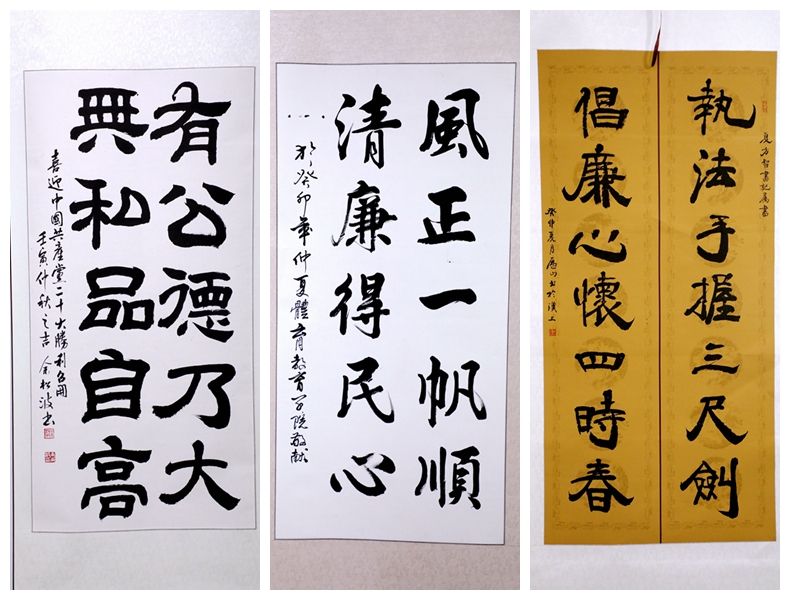 有公德乃大
無私品自高
喜迎中國共產黨二十大勝利召開
壬寅仲秋之吉 余松波书
風正一帆順
清廉得民心
於癸卯年仲夏體育教育学院敬献
書記屬書
執法手握三尺劍
倡廉心懷四時春
夏月 书於漢上